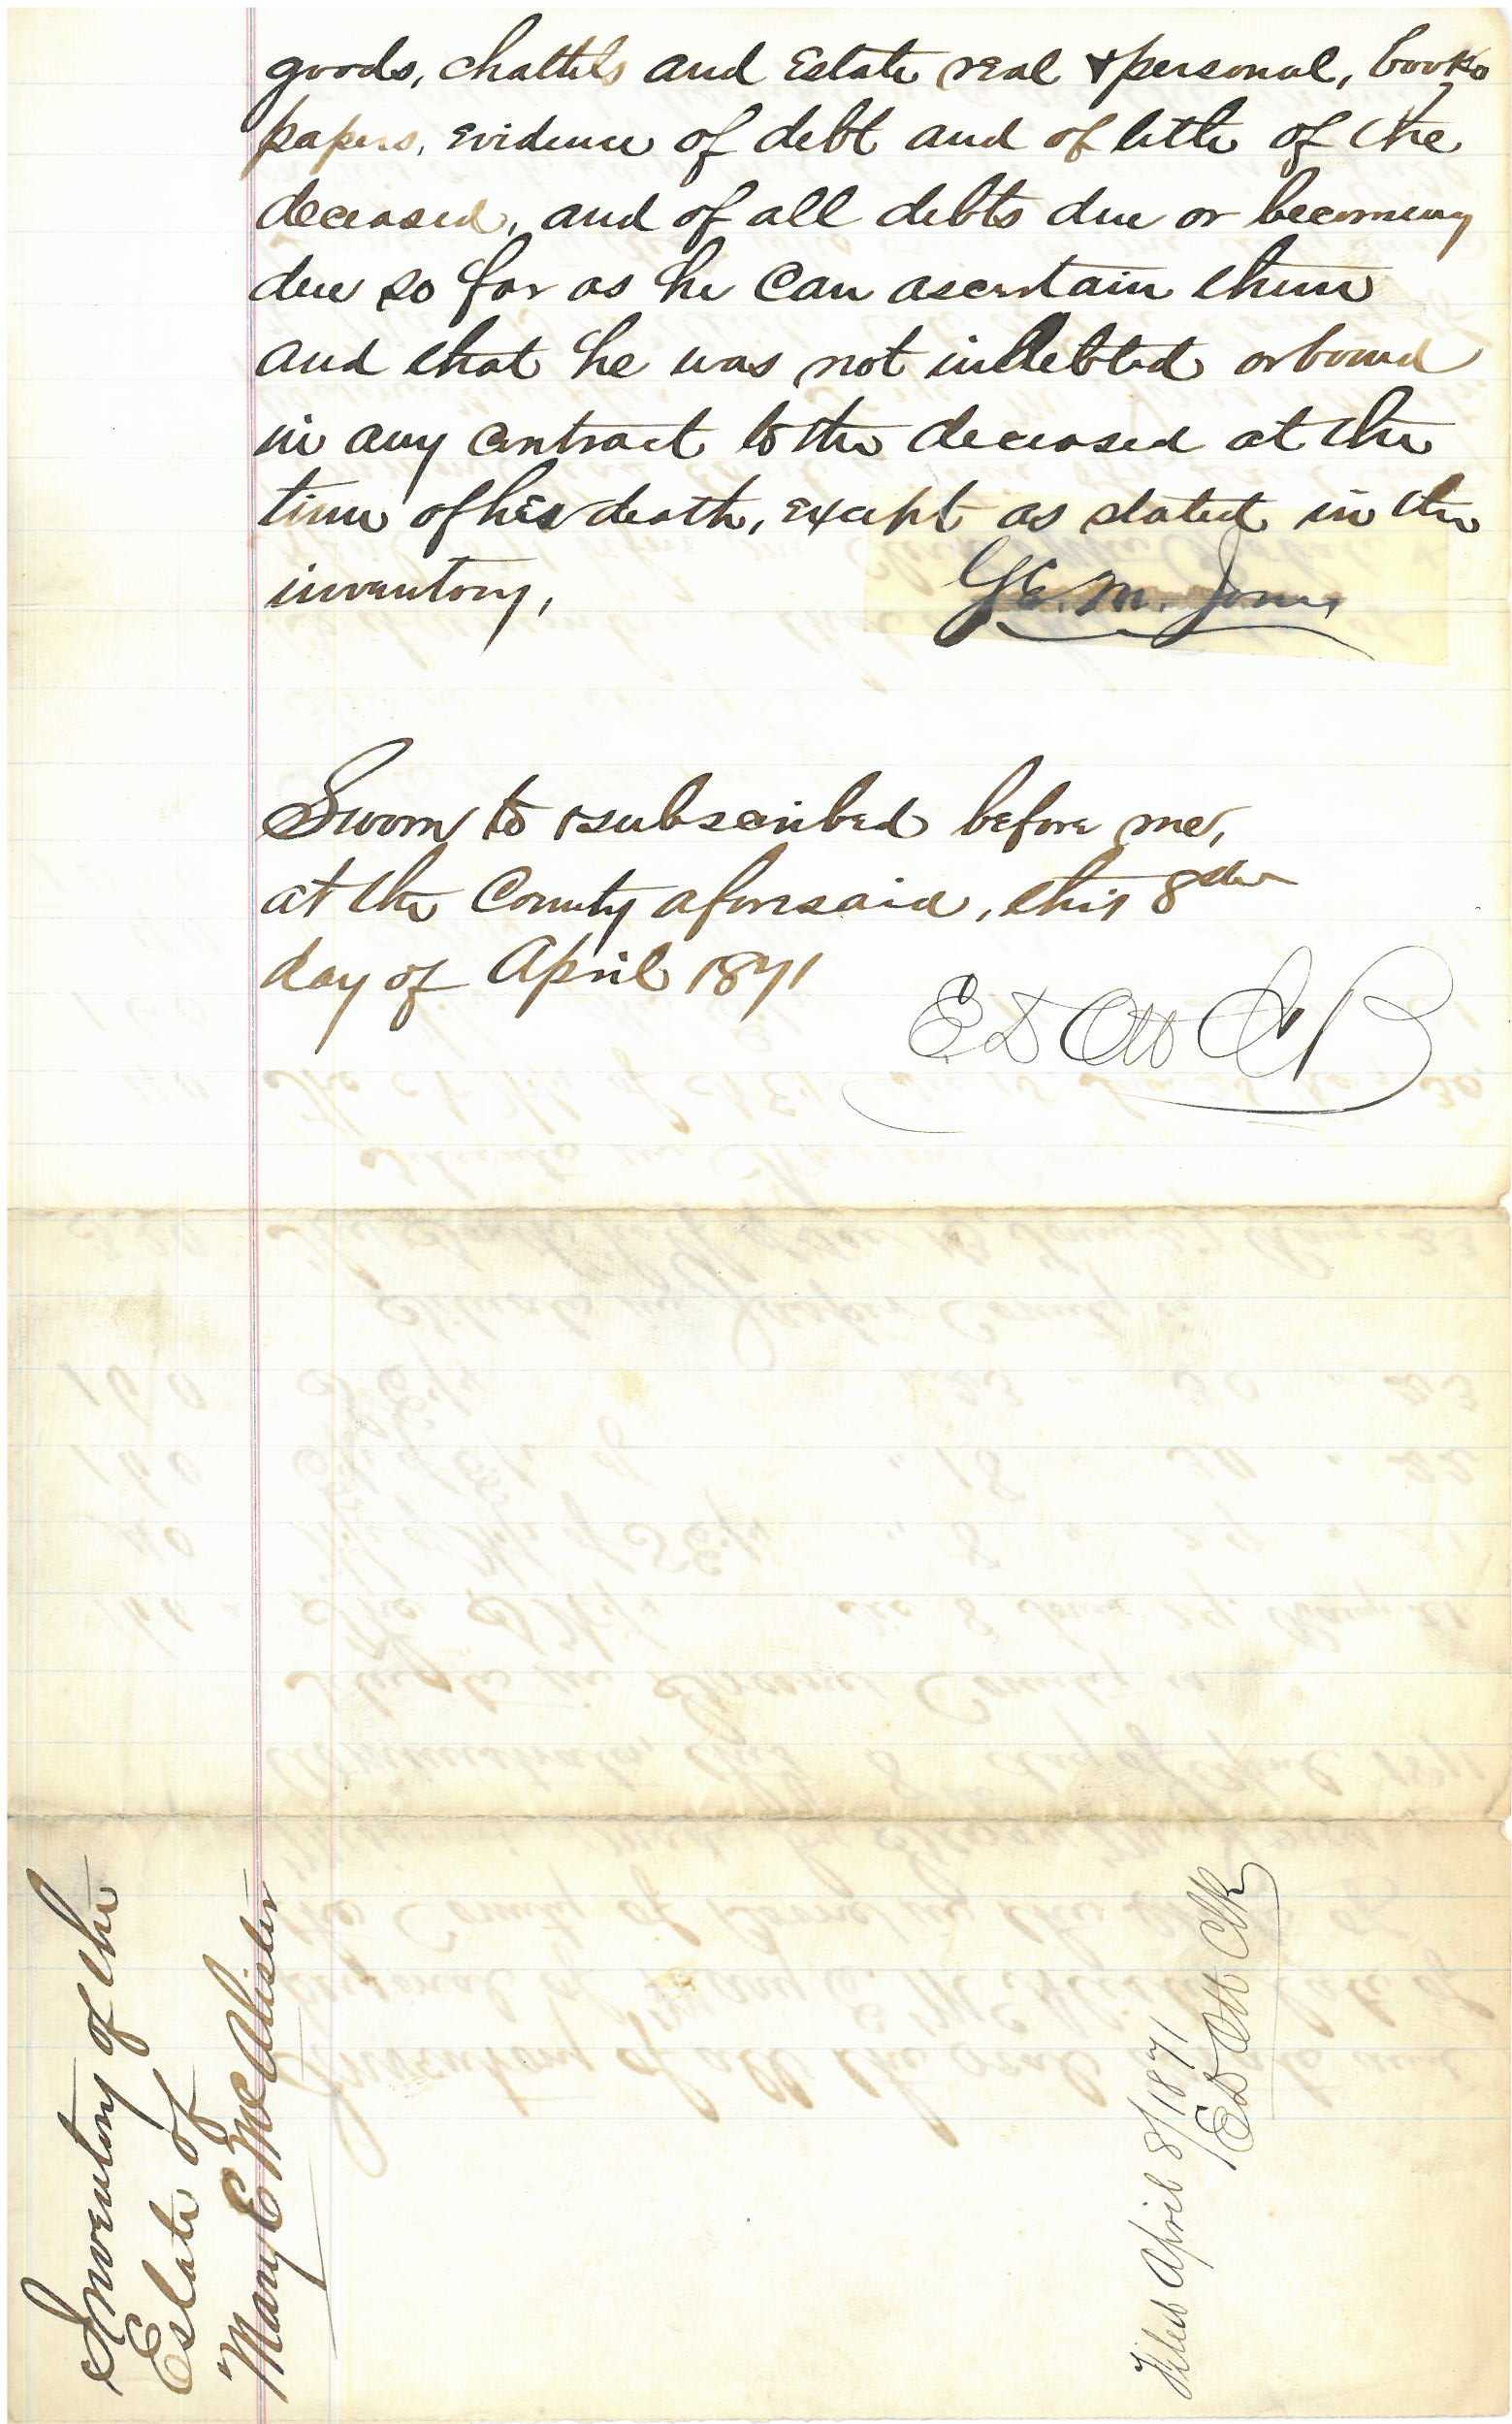 goods, chattels and Estate real & personal, books
papers, evidence of debt and of title of the
deceased, and of all debts due or becoming
due so far as he can ascertain them
and that he was not indebted or bound
in any contract to the deceased at the
time of his death, except as stated in the
inventory,
Geo. M. Jones
Sworn to & subscribed before me,
at the County aforesaid, this 8th
day of April 1871
E D Ott
Inventory of the
Estate of
Mary E McAlister
Filed April 8/1871
E D Ott Clk